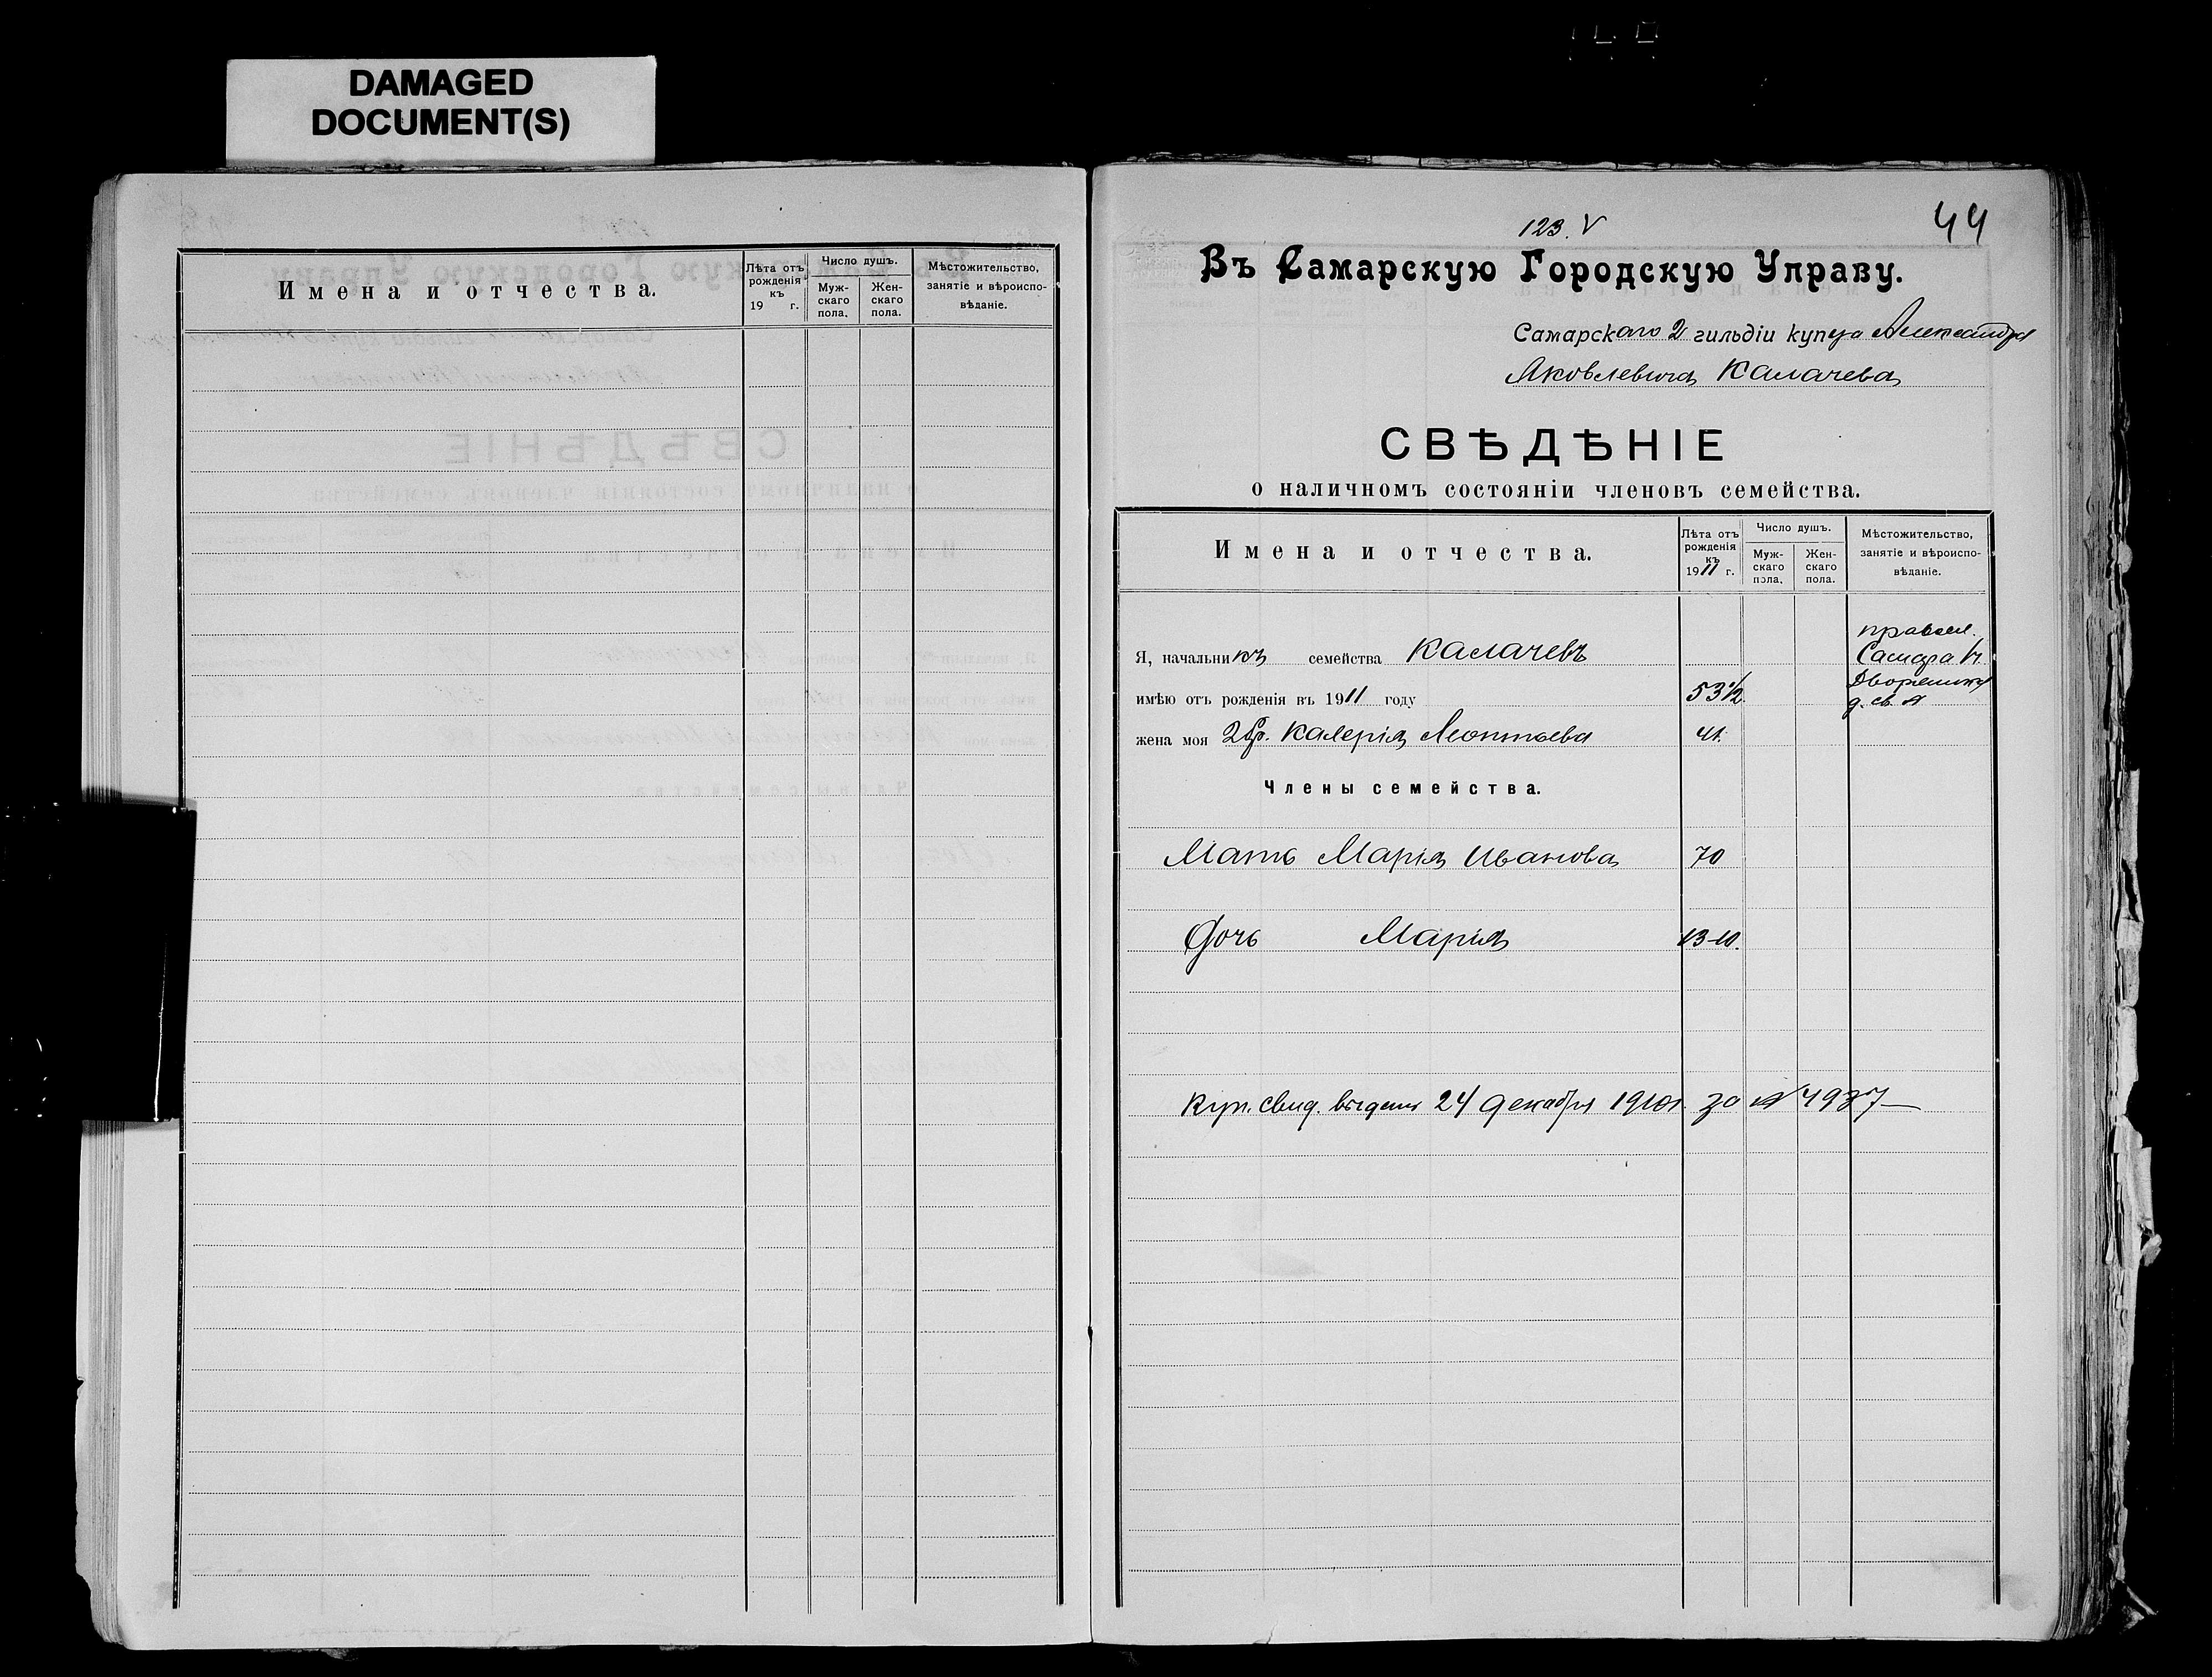 DAMAGED
DOCUMENT(S)
Имена и отчества.
Лѣта отъ рожденія къ 19 г.
Число душъ.
Мужскаго пола.
Женскаго пола.
Мѣстожительство, занятіе и вѣроисповѣданіе.
44
123. V
Въ Самарскую Городскую Управу.
Самарскаго 2 гильдіи купца Александра
Яковлевича Калачева
СВѢДѢНІЕ
о наличномъ состояніи членовъ семейства.
Имена и отчества.
Лѣта отъ рожденія къ 1911 г.
Число душъ.
Мужскаго пола.
Женскаго пола.
Мѣстожительство, занятіе и вѣроисповѣданіе.
правосл.
Я, начальникъ семейства Калачевъ Самара
имѣю отъ рожденія въ 1911 году 53 1/2 Дворянск
д. св.
жена моя 2 бр. Калерія Леонтьева 41.
Члены семейства.
Мать Марія Иванова 70
Дочь Марія 13-10.
Куп. свид. выдано 24 декабря 1910 г. за № 4937